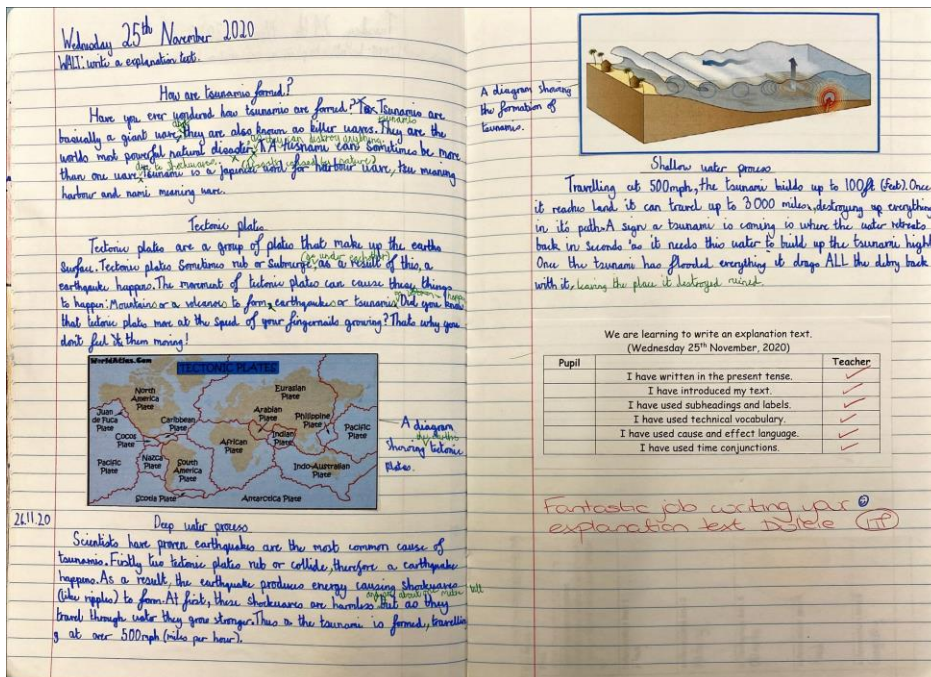 Wednesday 25th November 2020
WALT: write a explanation text.
How are tsunamis formed?
Have you ever wondered how tsunamis are formed? Tsunamis are
basically a giant wave, they are also known as killer waves. They are the
tsunamis
worlds most powerful natural disaster. A tusnami can sometimes be more
as they can destroy anything.
than one wave. Tsunami is a japenise word for harbour wave, tsu meaning
due to shockwaves.
harbour and nami meaning wave.
Tectonic plates
Tectonic plates are a group of plates that make up the earths
surface. Tectonic plates sometimes rub or submerge, as a result of this, a
(go under eachother)
earthquake happens. The movement of tectonic plates can cause these things
to happen: Mountains or a volcanoes to form, earthquakes or tsunamis. Did you know
that tectonic plates move at the speed of your fingernails growing? Thats why you
don't feel them moving!
WorldAtlas.Com
TECTONIC PLATES
North America Plate
Eurasian Plate
Juan de Fuca Plate
Caribbean Plate
Arabian Plate
Philippine Plate
Cocos Plate
African Plate
Indian Plate
Pacific Plate
Pacific Plate
Nazca Plate
South America Plate
Indo-Australian Plate
Scotia Plate
Antarctica Plate
A diagram
showing tectonic
plates.
26.11.20
Deep water process
Scientists have proven earthquakes are the most common cause of
tsunamis. Firstly two tectonic plates rub or collide, therefore a earthquake
happens. As a result, the earthquake produces energy causing shockwaves
(like ripples) to form. At first, these shockwaves are harmless but as they
about one metre tall
travel through water they grow stronger. Thus a the tsunami is formed, travellin
g at over 500mph (miles per hour).
A diagram showing
the formation of
tsunamis.
Shallow water process
Travelling at 500mph, the tsunami builds up to 100ft (feet). Once
it reaches land it can travel up to 3000 miles, destroying up everything
in its path. A sign a tsunami is coming is where the water retreats
back in seconds as it needs this water to build up the tsunami high!
Once the tsunami has flooded everything it drags ALL the debry back
with it, leaving the place it destroyed ruined.
We are learning to write an explanation text.
(Wednesday 25th November, 2020)
Pupil
Teacher
I have written in the present tense.
I have introduced my text.
I have used subheadings and labels.
I have used technical vocabulary.
I have used cause and effect language.
I have used time conjunctions.
Fantastic job writing your
explanation text
1TP